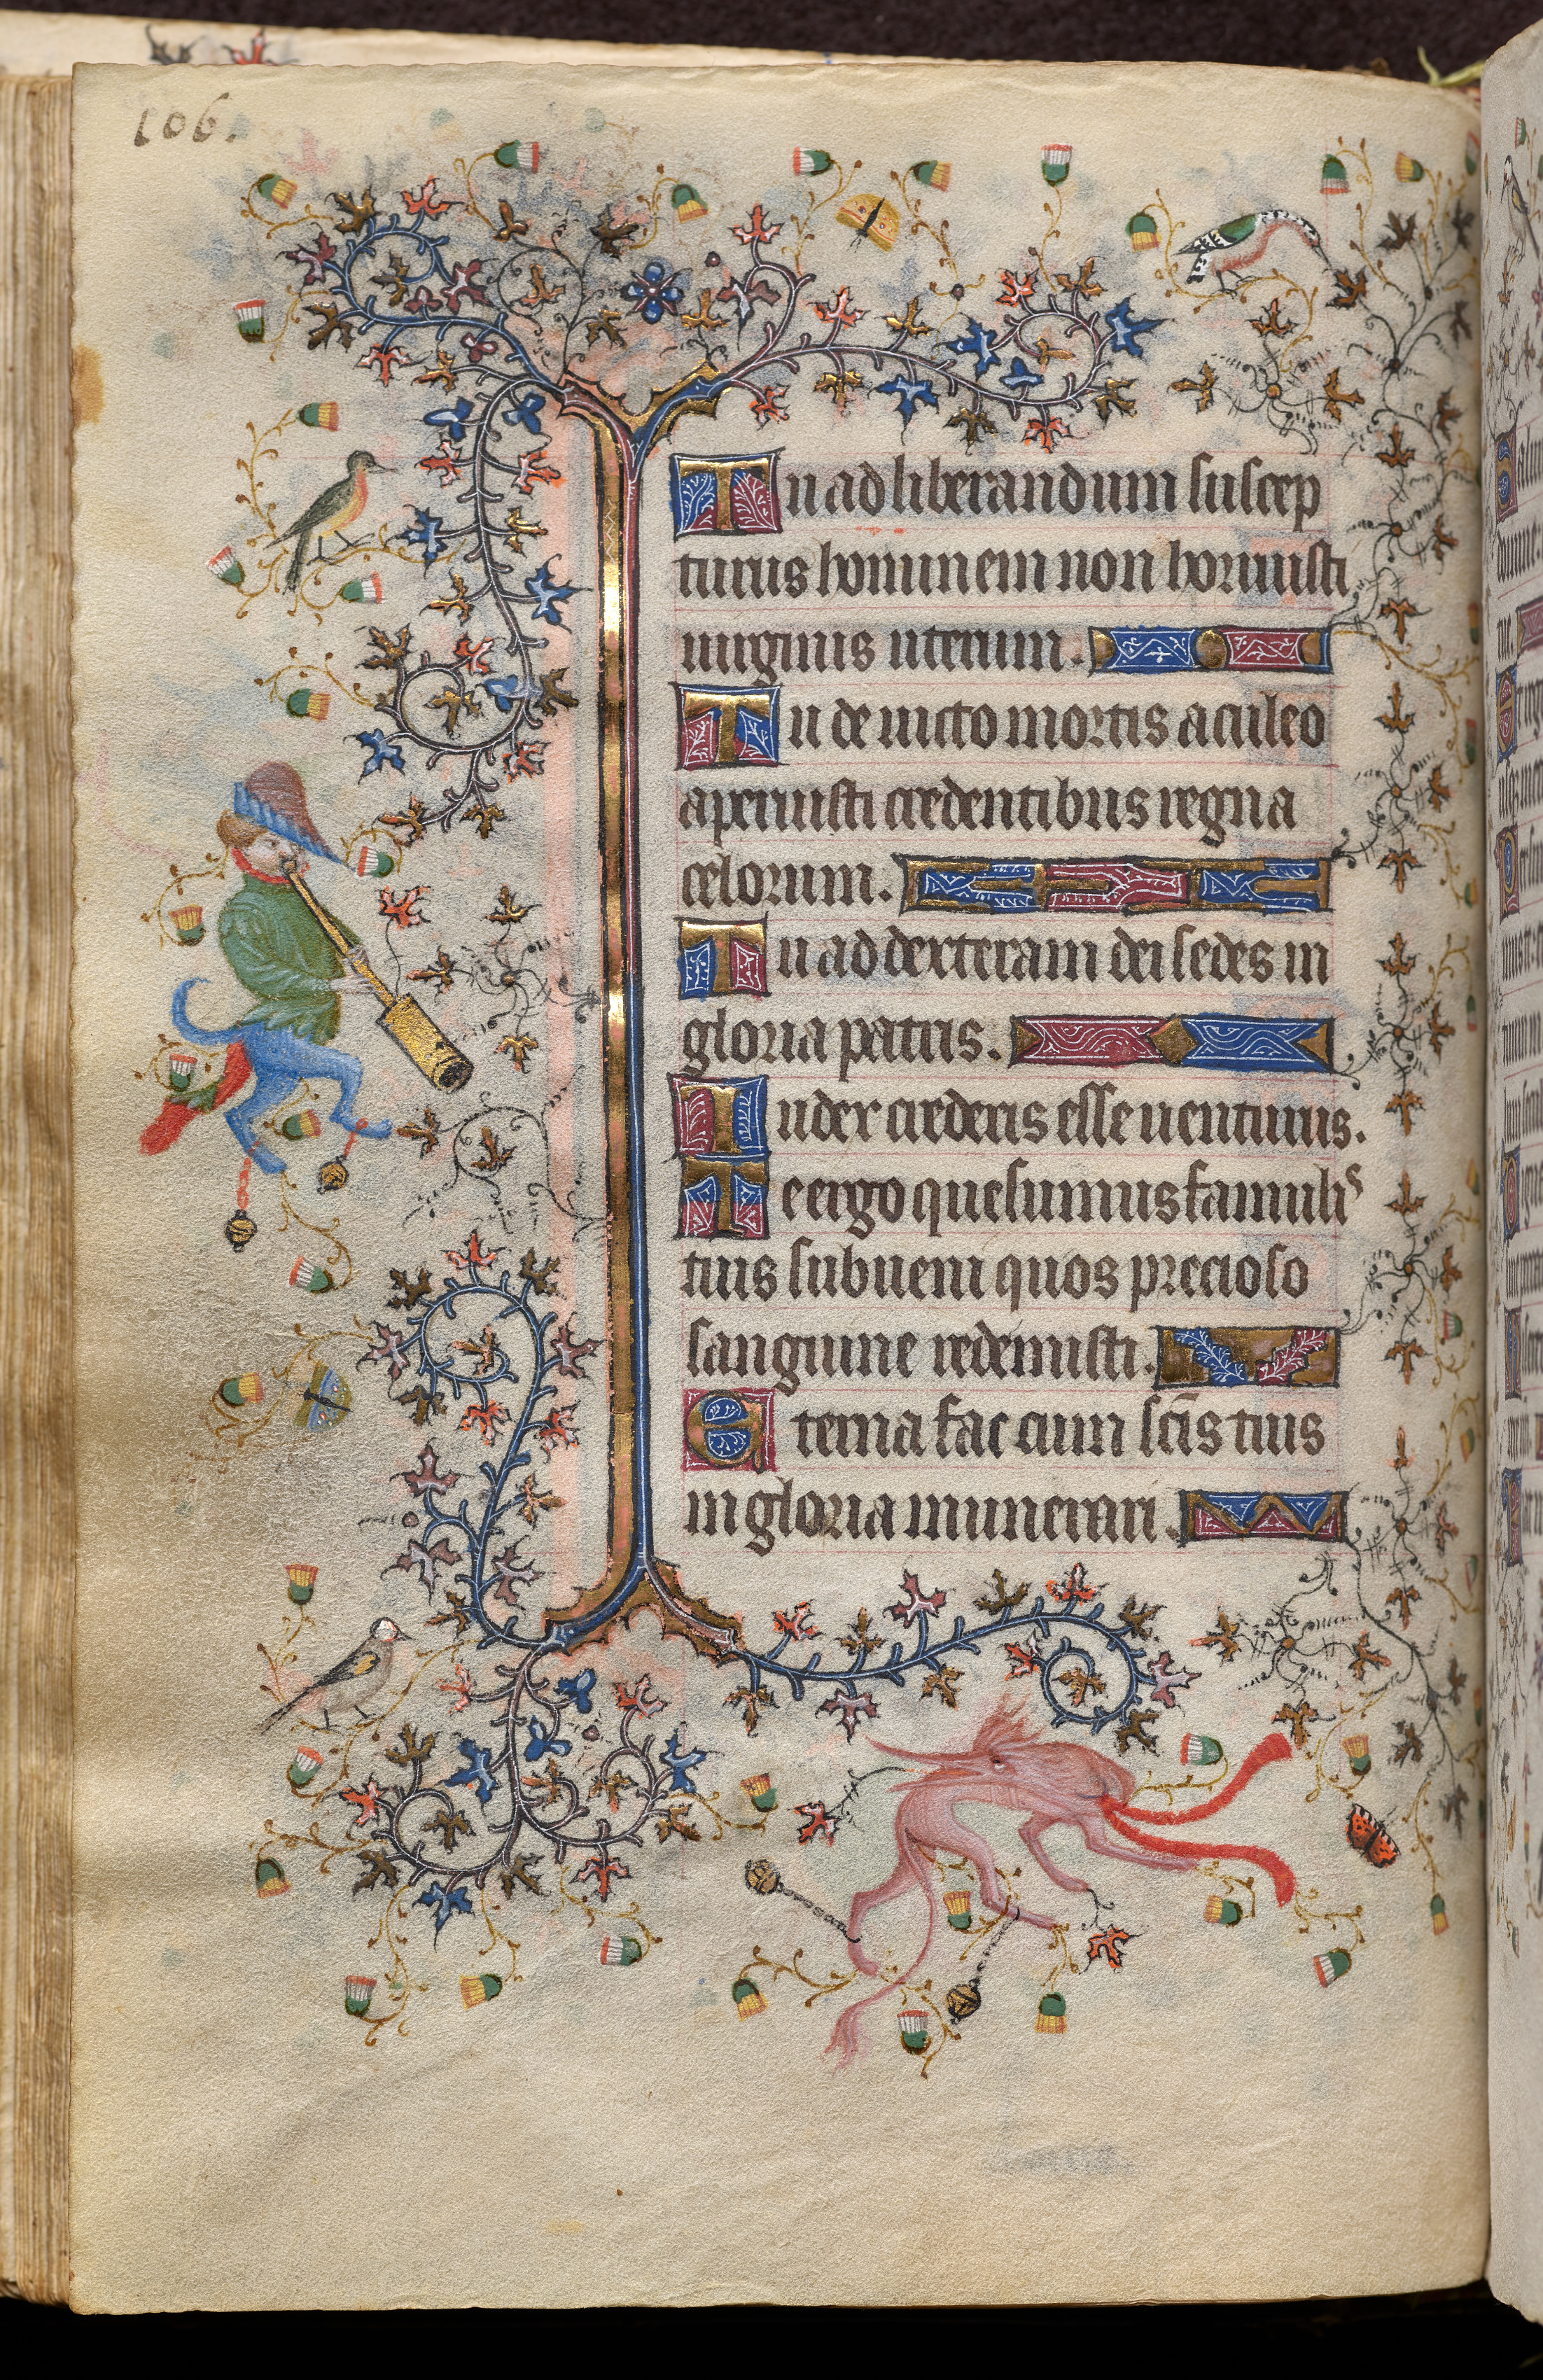 106.
Tu ad liberandum suscep
turus hominem non horruisti
uirginis uterum.
Tu de uicto mortis aculeo
aperuisti credentibus regna
celorum.
Tu ad dexteram dei sedes in
gloria patris.
Iudex crederis esse uenturus.
Te ergo quesumus famulis
tuis subueni quos precioso
sanguine redemisti.
Eterna fac cum scīs tuis
in gloria munerari.